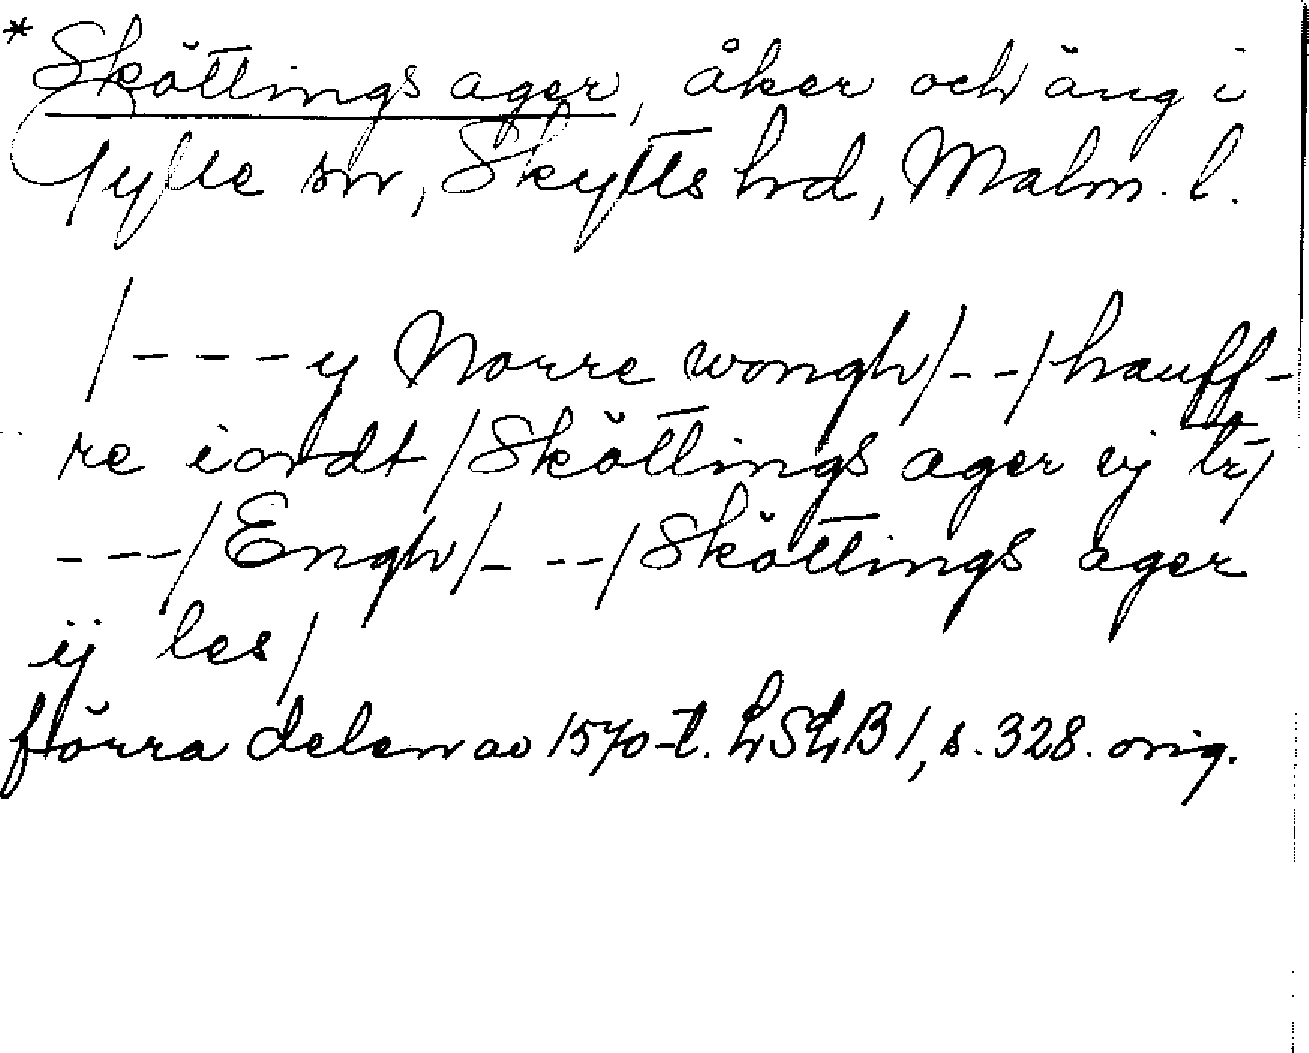 * Sköttings ager, åker och äng i
Gylle sn, Skytts hd, Malm. l.
/- - - y Norre wongh/- - /hauff-
re iordt/Sköttings ager vj tr/
- - -/Engh/- - -/Sköttings ager
ij les/
förra delen av 1570-t. LSLB 1, s. 328. orig.